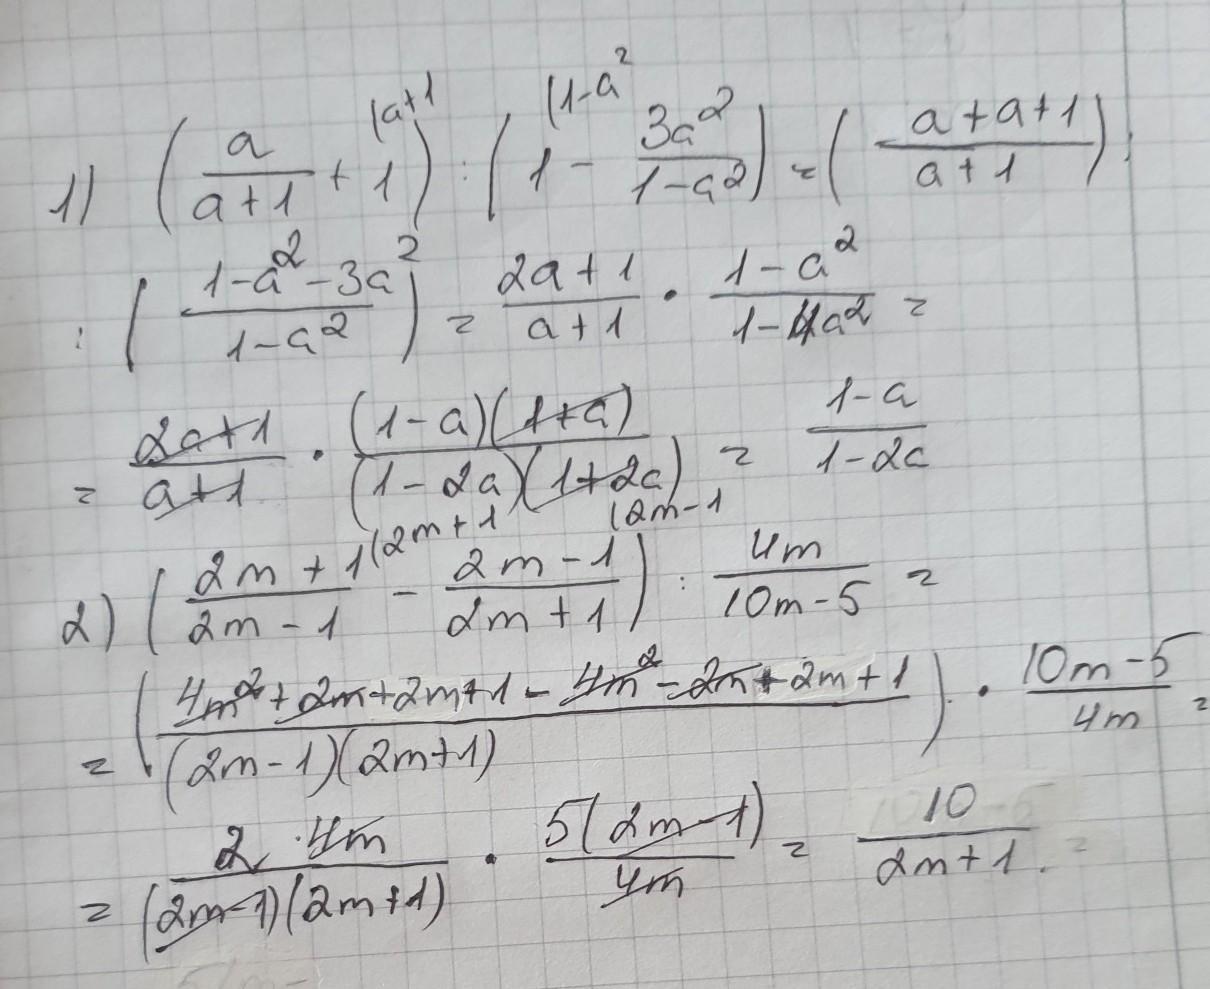 1) (a/(a+1) + 1 (a+1) : (1 (1-a² - 3a²/(1-a²)) = ((a+a+1)/(a+1)) :
: ((1-a²-3a²)/(1-a²)) = (2a+1)/(a+1) · (1-a²)/(1-4a²) =
= (2a+1)/(a+1) · ((1-a)(1+a))/((1-2a)(1+2a)) = (1-a)/(1-2a)
2) ((2m+1)/(2m-1) (2m+1 - (2m-1)/(2m+1) (2m-1) : 4m/(10m-5) =
= ((4m²+2m+2m+1-4m²-2m+2m+1)/((2m-1)(2m+1))) · (10m-5)/4m =
= (2·4m)/((2m-1)(2m+1)) · 5(2m-1)/4m = 10/(2m+1).